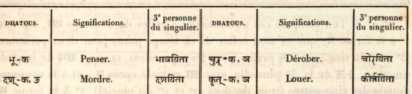 DHATOUS. Significations. 3e personne du singulier. DHATOUS. Significations. 3e personne du singulier.
भू-क Penser. भावयिता चुर्-क, ञ Dérober. चोरयिता
Mordre. कृत्-क, ञ Louer. कीर्तयिता